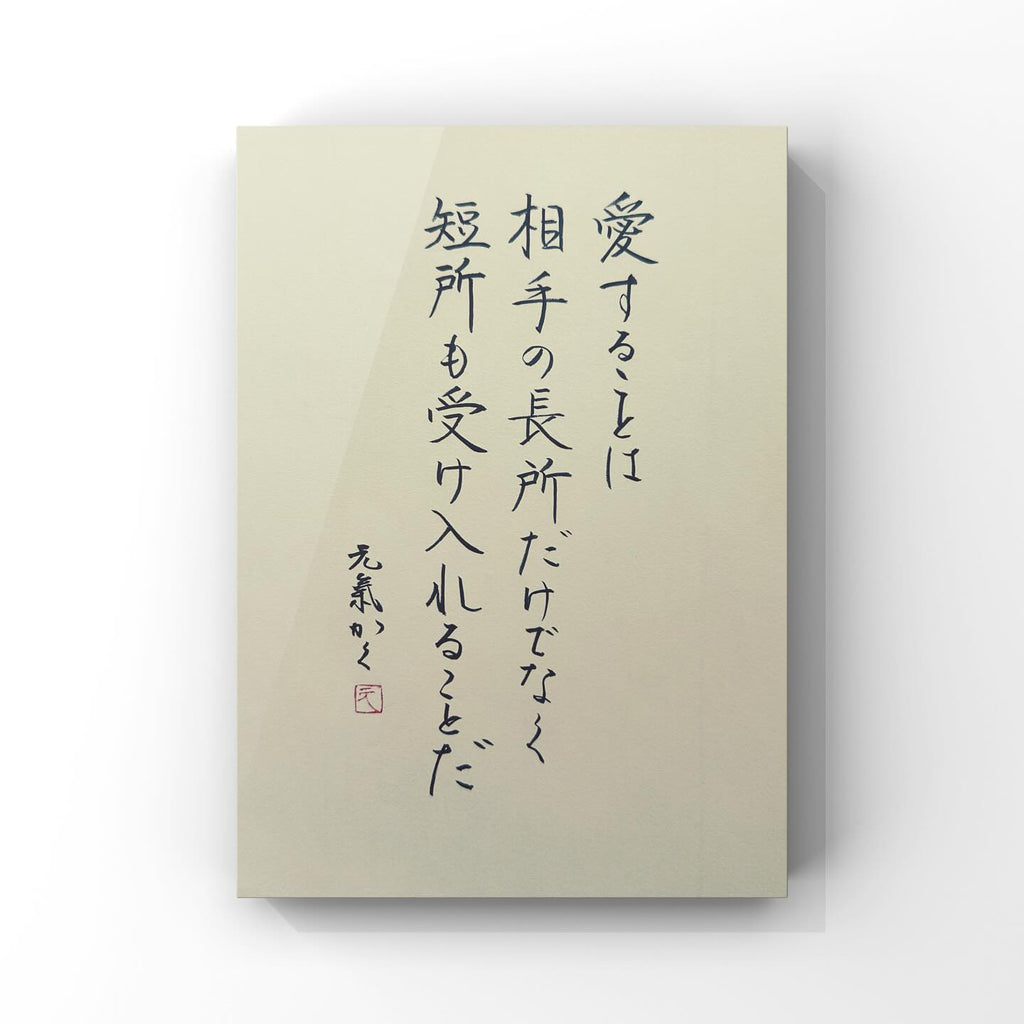 愛することは
相手の長所だけでなく
短所も受け入れることだ
元氣かく
元